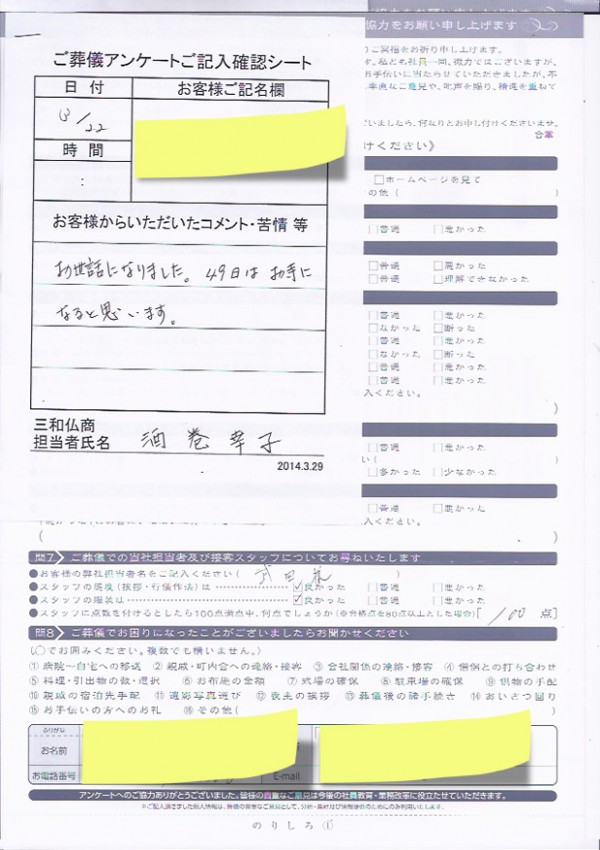 協力をお願い申し上げます
りご冥福をお祈り申し上げます。
ご葬儀アンケートご記入確認シート
す、私ども社員一同、微力ではございますが、
お手伝いに当たらせていただきましたが、不
日付
お客様ご記名欄
時間
:
いましたら、何なりとお申し付けくださいませ。
けください》
□ホームページを見て
の他(
お客様からいただいたコメント・苦情 等
□普通 □悪かった
お世話になりました。49日はお手に
なると思います。
□普通 □悪かった
□普通 □理解できなかった
□普通 □悪かった
□なかった □断った
□普通 □悪かった
□なかった □断った
□普通 □悪かった
□普通 □悪かった
入ください。
三和仏商
担当者氏名 酒巻幸子
2014.3.29
□普通 □悪かった
□多かった □少なかった
□普通 □悪かった
入ください。
問7 ご葬儀での当社担当者及び接客スタッフについてお尋ねいたします
●お客様の弊社担当者名をご記入ください( )
●スタッフの態度(挨拶・行儀作法)は □良かった □普通 □悪かった
●スタッフの服装は □良かった □普通 □悪かった
●スタッフに点数を付けるとしたら100点満点中、何点でしょうか(※合格点を80点以上とした場合)「100 点」
問8 ご葬儀でお困りになったことがございましたらお聞かせください
(○でお囲みください。複数でも構いません。)
①病院~自宅への移送 ②親戚・町内会への連絡・接客 ③会社関係の連絡・接客 ④僧侶との打ち合わせ
⑤料理・引出物の数・選択 ⑥お布施の金額 ⑦式場の確保 ⑧駐車場の確保 ⑨供物の手配
⑩親戚の宿泊先手配 ⑪遺影写真選び ⑫喪主の挨拶 ⑬葬儀後の諸手続き ⑭あいさつ回り
⑮お手伝いの方へのお礼 ⑯その他( )
ふりがな
お名前
お電話番号
E-mail
アンケートへのご協力ありがとうございました。皆様の貴重なご意見は今後の社員教育・業務改革に役立たせていただきます。
のりしろ①